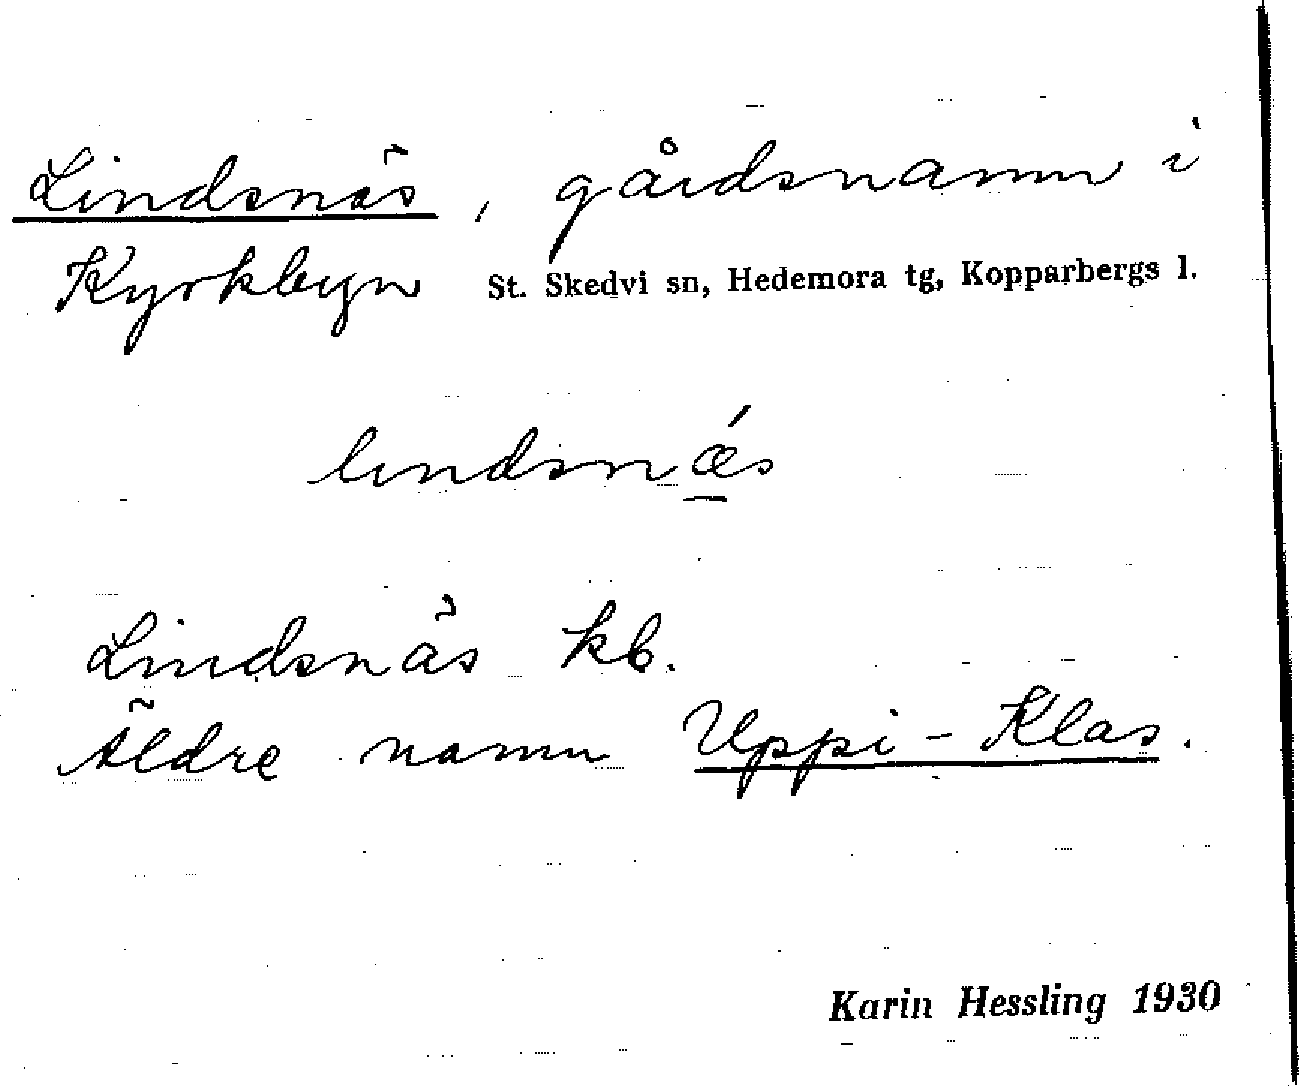 Lindsnäs, gårdsnamn i
Kyrkbyn St. Skedvi sn, Hedemora tg, Kopparbergs l.
lindsnǽs
Lindsnäs kb.
Äldre namn Uppi-Klas.
Karin Hessling 1930